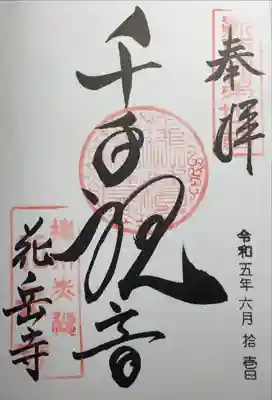 奉拝
千手観音
令和五年六月拾壱日
花岳寺